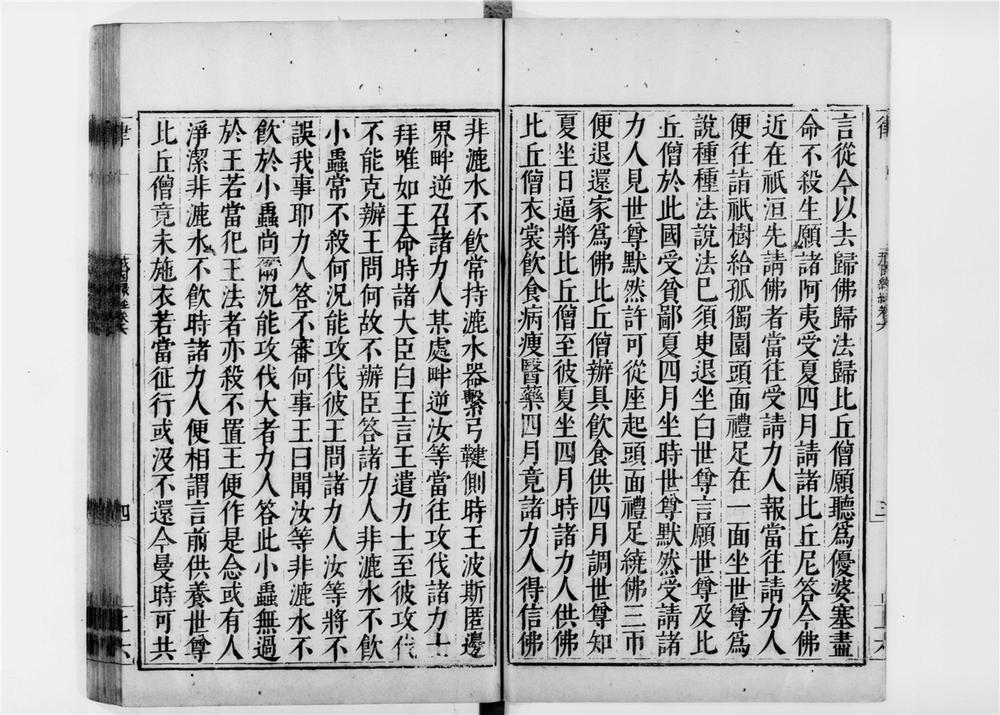 言從今以去歸佛歸法歸比丘僧願聽爲優婆塞盡
命不殺生願諸阿夷受夏四月請諸比丘尼答今佛
近在祇洹先請佛者當往受請力人報當往請力人
便往詣祇樹給孤獨園頭面禮足在一面坐世尊爲
說種種法說法已須臾退坐白世尊言願世尊及比
丘僧於此國受貧鄙夏四月坐時世尊默然受請諸
力人見世尊默然許可從座起頭面禮足繞佛三帀
便退還家爲佛比丘僧辦具飲食供四月調世尊知
夏坐日逼將比丘僧至彼夏坐四月時諸力人供佛
比丘僧衣裳飲食病瘦醫藥四月竟諸力人得信佛
非漉水不飲常持漉水器繫弓鞬側時王波斯匿邊
界畔逆召諸力人某處畔逆汝等當往攻伐諸力士
拜唯如王命時諸大臣白王言王遣力士至彼攻伐
不能克辦王問何故不辦臣答諸力人非漉水不飲
小蟲常不殺何況能攻伐彼王問諸力人汝等將不
誤我事耶力人答不審何事王曰聞汝等非漉水不
飲於小蟲尚爾況能攻伐大者力人答此小蟲無過
於王若當犯王法者亦殺不置王便作是念或有人
淨潔非漉水不飲時諸力人便相謂言前供養世尊
比丘僧竟未施衣若當征行或沒不還今曼時可共
律
四